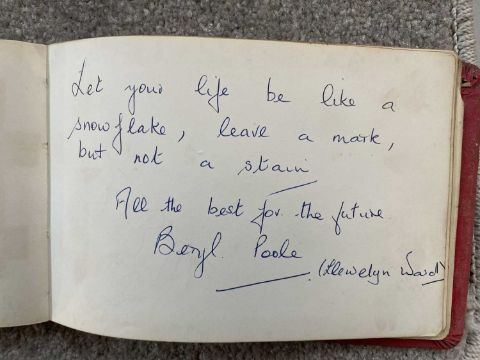 Let your life be like a
snowflake, leave a mark,
but not a stain
All the best for the future
Beryl Poole
(Llewelyn Ward)